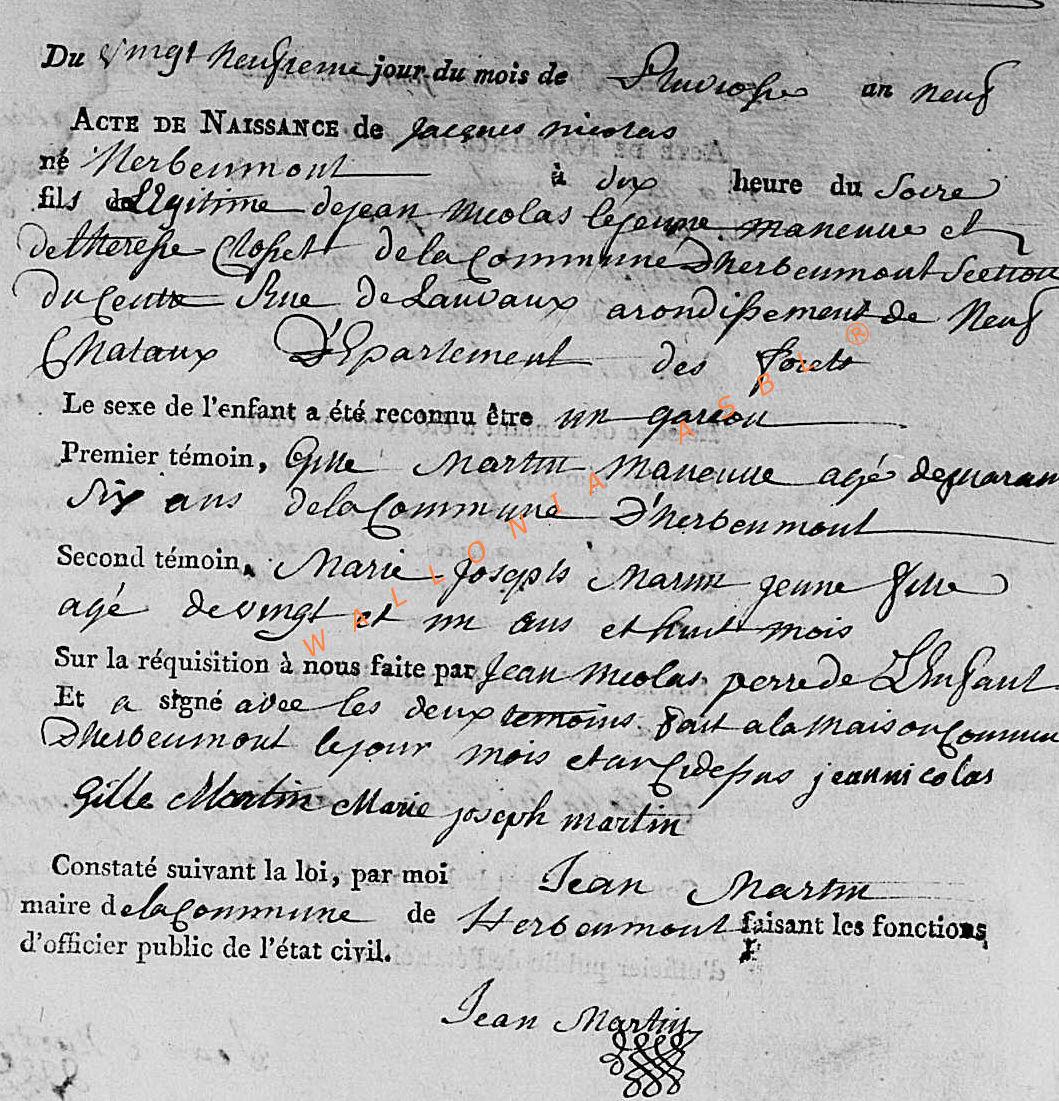 Du vingt neufieme jour du mois de Pluviosse an neuf
ACTE DE NAISSANCE de jacques nicolas
né herbeumont à dix heure du soire
fils legitime de jean nicolas lejeune maneuve et
de theresse Closset de la Commune D'herbeumont Section
du Centre Rue de Lauvaux arondissement de Neuf
Chataux D'Epartement des forets
Le sexe de l'enfant a été reconnu être un garcon
Premier témoin, Gille Martin maneuve agé de quaran
six ans de la Commune D'herbeumont
Second témoin, Marie joseph Martin jeune fille
agé de vingt et un ans et huit mois
Sur la réquisition à nous faite par jean nicolas perre de L'Enfant
Et a signé avec les deux temoins fait a la maison Commun
D'herbeumont le jour mois et an Cidessus jean nicolas
gille Martin Marie joseph martin
Constaté suivant la loi, par moi Jean Martin
maire de la Commune de Herbeumont faisant les fonctions
d'officier public de l'état civil.
Jean Martin
WALLONIA ASBL ®